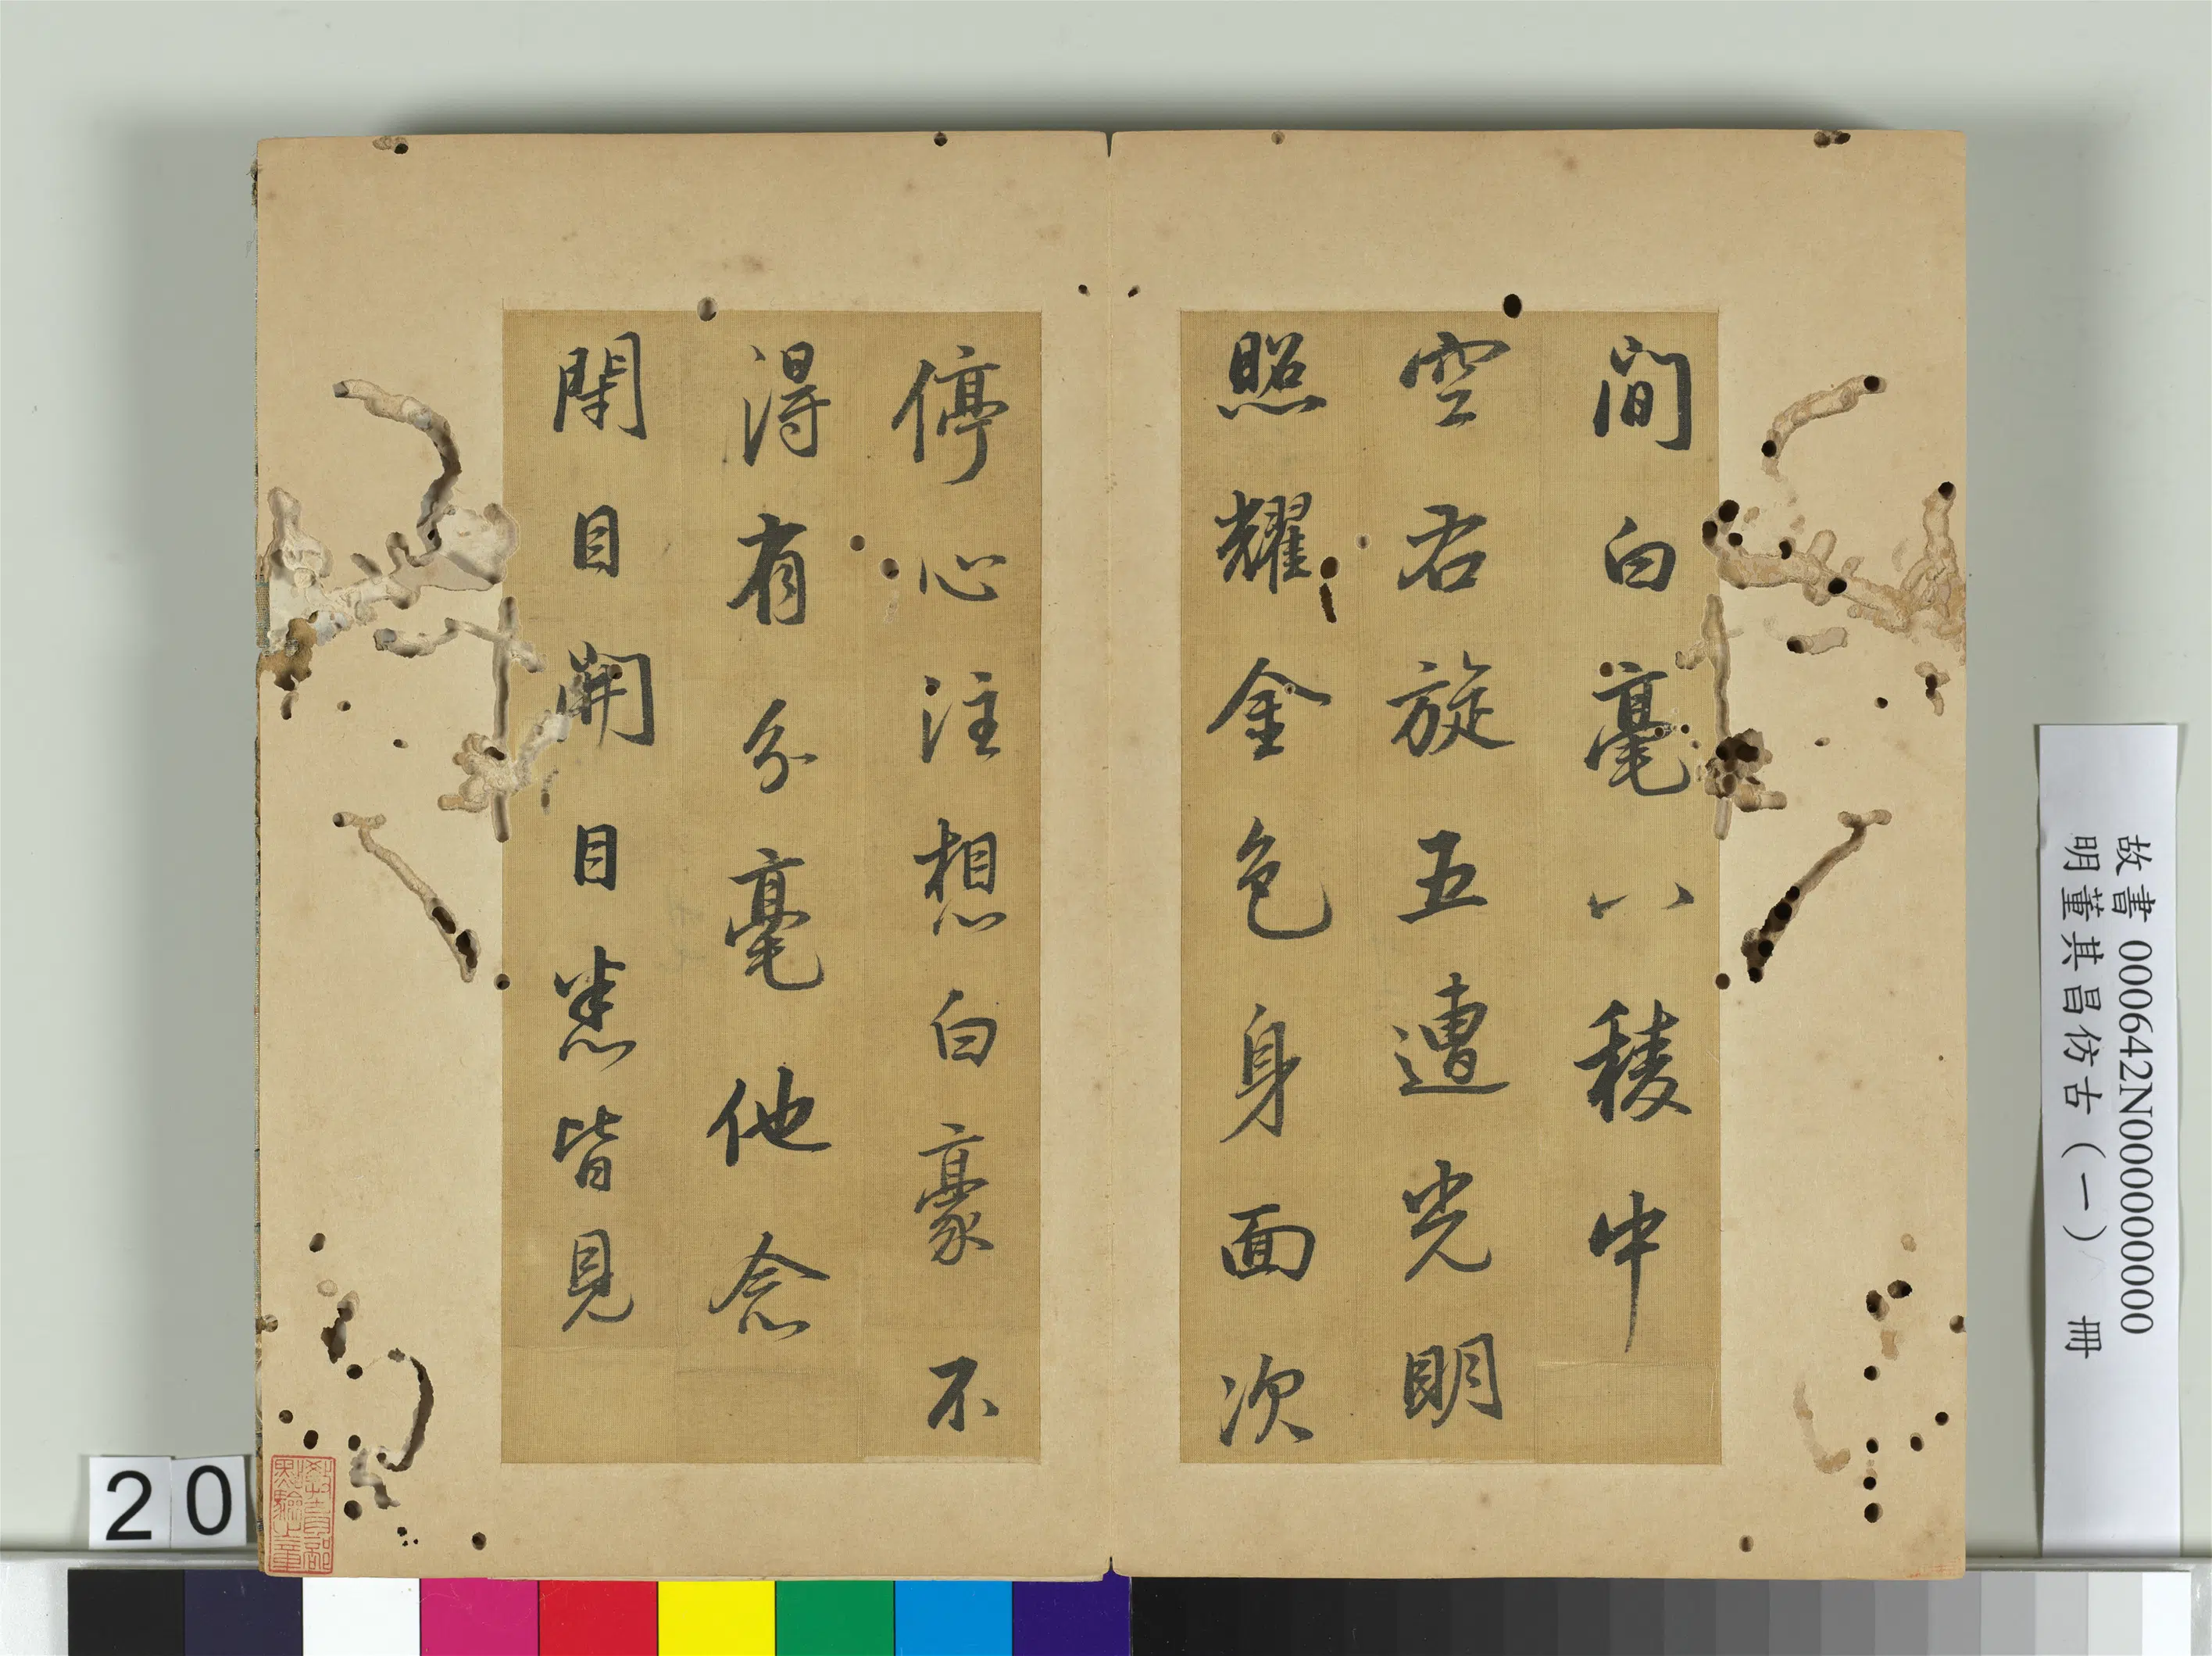 間白毫八稜中
空右旋五遭光明
照耀金色身面次
停心注想白豪不
得有分毫他念
閉目開目悉皆見
故書000642N000000000
明董其昌仿古（一） 冊
教育部
點驗之章
20